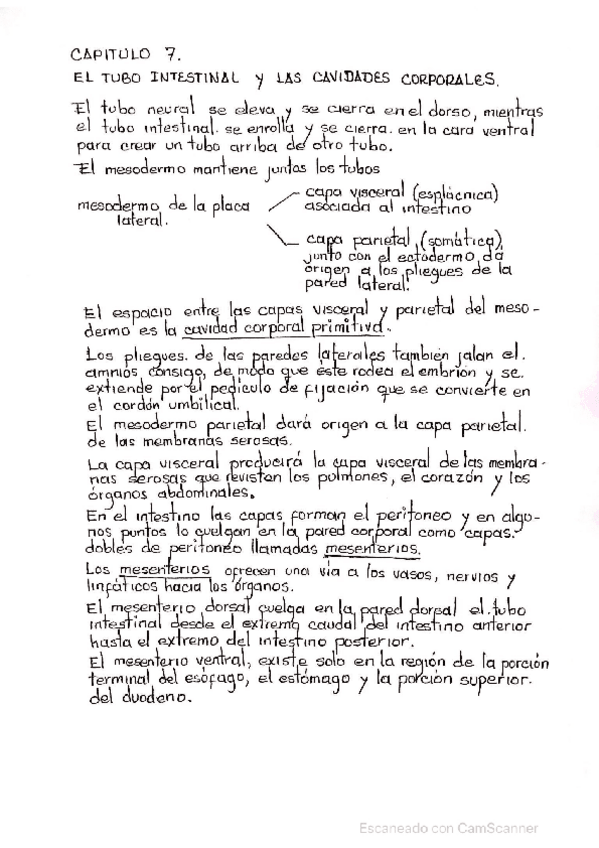 CAPITULO 7.
EL TUBO INTESTINAL y LAS CAVIDADES CORPORALES.
El tubo neural se eleva y se cierra en el dorso, mientras
el tubo intestinal. se enrolla y se cierra. en la cara ventral
para crear un tubo arriba de otro tubo.
El mesodermo mantiene juntos los tubos
mesodermo de la placa
lateral.
capa visceral (esplácnica)
asociada al intestino
capa parietal (somática),
junto con el ectodermo da
origen a los pliegues de la
pared lateral.
El espacio entre las capas visceral y parietal del meso-
dermo es la cavidad corporal primitiva.
Los pliegues. de las paredes laterales también jalan el.
amnios consigo, de modo que éste rodea el embrión y se.
extiende por el pedículo de fijación que se convierte en
el cordón umbilical.
El mesodermo parietal dará origen a la capa parietal.
de las membranas serosas.
La capa visceral producirá la capa visceral de las membra-
nas serosas que revisten los pulmones, el corazón y los
órganos abdominales.
En el intestino las capas forman el peritoneo y en algu-
nos puntos lo cuelgan en la pared corporal como capas.
dobles de peritoneo llamadas mesenterios.
Los mesenterios ofrecen una vía a los vasos, nervios y
linfáticos hacia los órganos.
El mesenterio dorsal cuelga en la pared dorsal el tubo
intestinal desde el extremo caudal del intestino anterior
hasta el extremo del intestino posterior.
El mesenterio ventral, existe solo en la región de la porción
terminal del esófago, el estómago y la porción superior.
del duodeno.
Escaneado con CamScanner